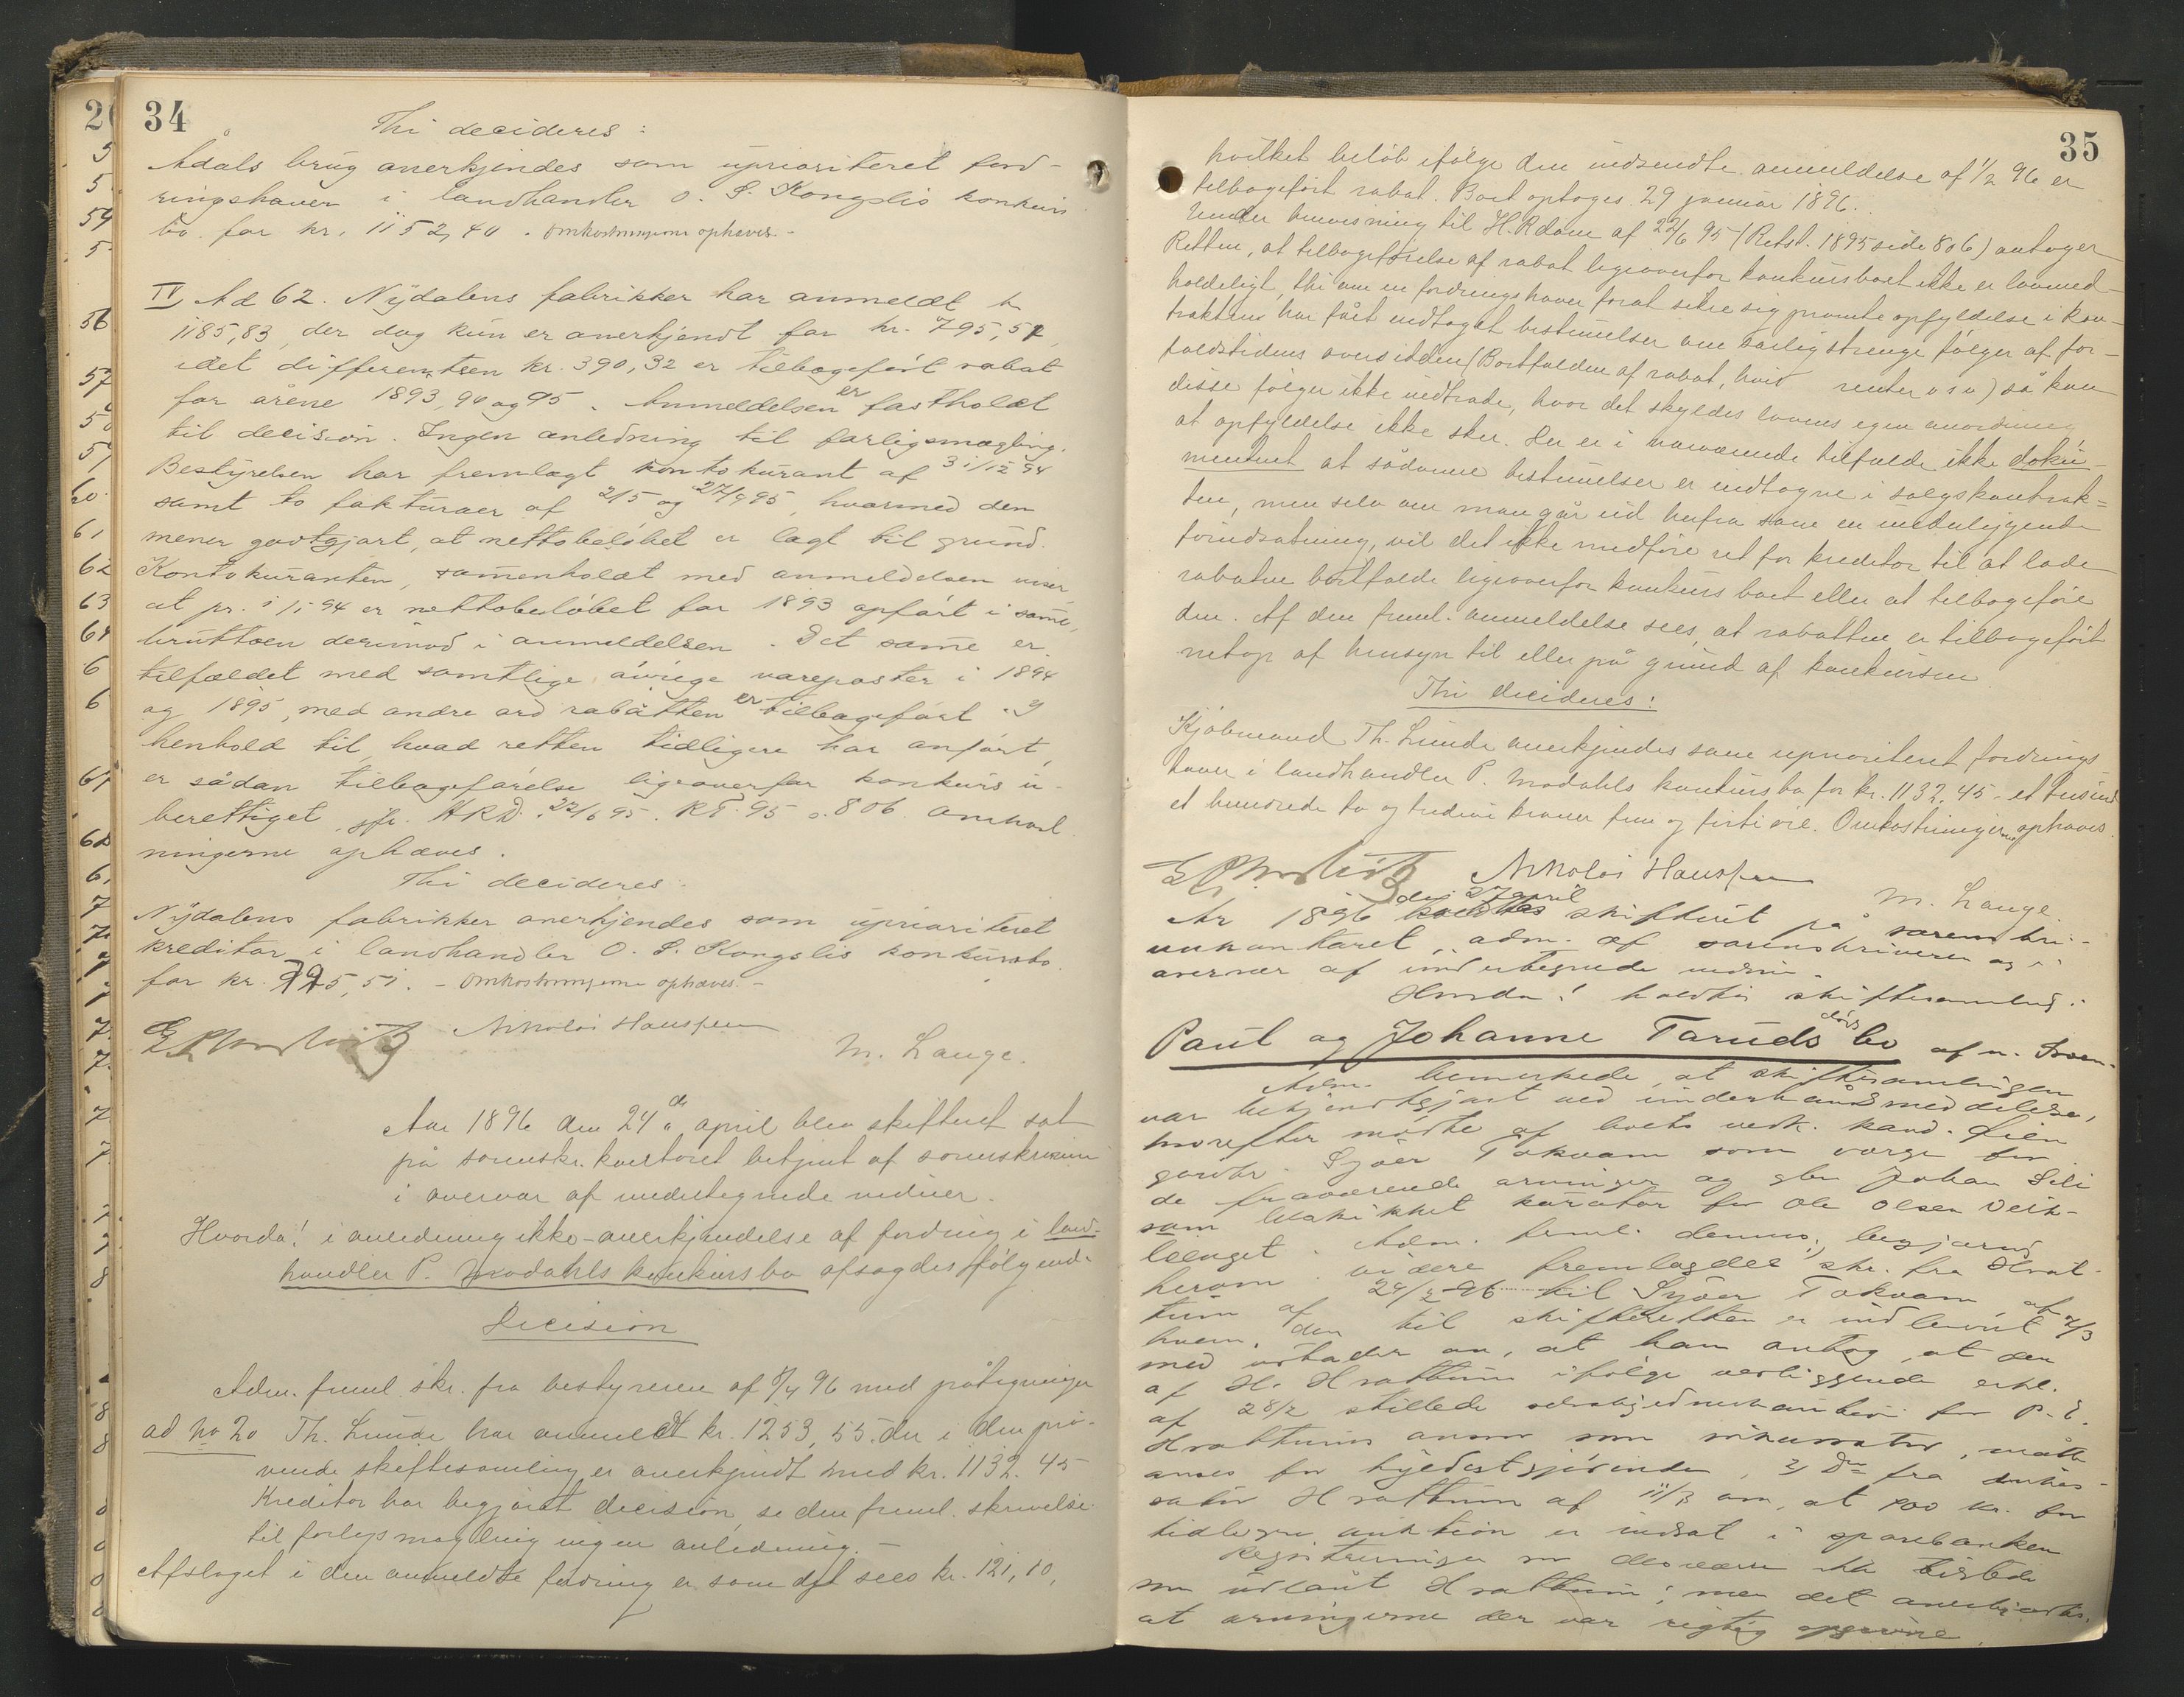 34
Thi decideres:
Ådals brug anerkjendes som uprioriteret ford-
ringshaver i landhandler O. S. Kongslis konkurs
bo for kr. 1152,40. Omkostningerne ophæves.-
IV Ad 62. Nydalens fabrikker har anmeldt kr
1185,83, der dog kun er anerkjendt for kr. 795,51,
idet differentsen kr. 390,32 er tilbageført rabat
for årene 1893, 94 og 95. Anmeldelsen er fastholdt
til decision. Ingen anledning til forligsmægling.
Bestyrelsen har fremlagt kontokurant af 31/12 94
samt to fakturaer af 2/5 og 27/9 95, hvormed den
mener godtgjort, at nettobeløbet er lagt til grund.
Kontokuranten, sammenholdt med anmeldelsen viser,
at pr. 1/1 94 er nettobeløbet for 1893 opført i samme,
bruttoen derimod i anmeldelsen. Det samme er
tilfældet med samtlige øvrige vareposter i 1894
og 1895, med andre ord rabatten er tilbageført. I
henhold til, hvad retten tidligere har anført,
er sådan tilbageførelse ligeoverfor konkurs u-
berettiget jfr. HRD. 22/6 95. RT. 95 s. 806. Omkost
ningerne ophæves.
Thi decideres:
Nydalens fabrikker anerkjendes som uprioriteret
kreditor i landhandler O. S. Kongslis konkursbo
for kr. 795,51. - Omkostningerne ophæves.-
Nikolai Hanssen
M. Lange.
Aar 1896 den 24de april blev skifteret sat
på sorenskr. kontoret betjent af sorenskriveren
i overvær af undertegnede vidner.
Hvorda! i anledning ikke-anerkjendelse af fordring i land-
handler P. Modahls konkursbo afsagdes følgende
Decision
Adm. freml. skr. fra bestyreren af 9/4 96 med påtegninger
ad No 20 Th. Lunde har anmeldt kr. 1253,55 der i den prø-
vende skiftesamling er anerkjendt med kr. 1132.45
Kreditor har begjært decision, se den freml. skrivelse
til forligsmægling ingen anledning. -
Afslaget i den anmeldte fordring er som det sees kr. 121,10,
35
hvilket beløb ifølge den indsendte anmeldelse af 1/2 96 er
tilbageført rabat. Boet optoges 29 januar 1896.
Under henvisning til H.R dom af 22/6 95 (Retst. 1895 side 806) antager
Retten, at tilbageførelse af rabat ligeoverfor konkursboet ikke er lovmed-
holdeligt, thi om en fordringshaver forat sikre sig promte opfyldelse i kon-
trakten har fået indtaget bestemmelser om særlig strenge følger af for-
faldstidens oversidden (Bortfalden af rabat, hvis renter osv) så kan
disse følger ikke indtræde, hvor det skyldes lovens egen anordning
at opfyldelse ikke sker. Der er i nærværende tilfælde ikke doku-
menteret at sådanne bestemmelser er indtagne i salgskontrak-
ten, men selv om man går ud herfra som en underliggende
forudsætning, vil det ikke medføre ret for kreditor til at lade
rabatten bortfalde ligeoverfor konkursboet eller at tilbageføre
den. Af den freml. anmeldelse sees, at rabatten er tilbageført
netop af hensyn til eller på grund af konkursen
Thi decideres:
Kjøbmand Th. Lunde anerkjendes som uprioriteret fordrings
haver i landhandler P. Modahls konkursbo for kr. 1132.45 - et tusind
et hundrede to og tredive kroner fem og firti øre. Omkostningerne ophæves.
Nikolai Hanssen
M. Lange.
År 1896 den 27 april holdtes skifteret på sorenskri-
verkontoret, adm. af sorenskriveren og i
overvær af undertegnede vidner.
Hvorda! holdtes skiftesamling i
Paul og Johanne Taruds dødsbo af n. Sven-
Adm. bemerkede, at skiftesamlingen
var bekjendtgjort ved underhåndsmeddelelse,
hvorefter mødte af boets vedk. kand. Lien
gårdbr. Sjøer Tokvam som værge for
de fraværende arvinger og gbr Johan Sili
som beskikket kurator for Ole Olsen Veik-
leenget. Adm. freml. dennes begjæring
herom. Videre fremlagdes skr. fra Hrat-
tum af 29/2 96 til Sjøer Tokvam, af
hvem den til skifteretten er indleveret 7/3
med udtalelse om, at han antog, at den
af H. Hrattum ifølge vedliggende erkl.
af 28/2 stillede selvskyldnerkaution for P. E.
Hrattums ansvar som inkassator, måtte
anses for fyldestgjørende, 2) Do fra inkas-
sator Hrattum af 11/3 om, at 900 kr. for
tidligere auktion er indsat i sparebanken
Registreringen var desværre ikke tilstede
men udlånt Hrattum; men det anerkjendtes,
at arvingerne der var rigtig opgivne.